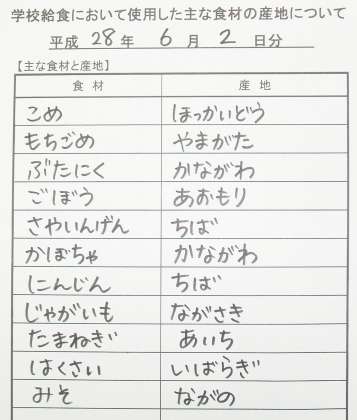 学校給食において使用した主な食材の産地について
平成 28 年 6 月 2 日分
【主な食材と産地】
食材 産地
こめ ほっかいどう
もちごめ やまがた
ぶたにく かながわ
ごぼう あおもり
さやいんげん ちば
かぼちゃ かながわ
にんじん ちば
じゃがいも ながさき
たまねぎ あいち
はくさい いばらぎ
みそ ながの